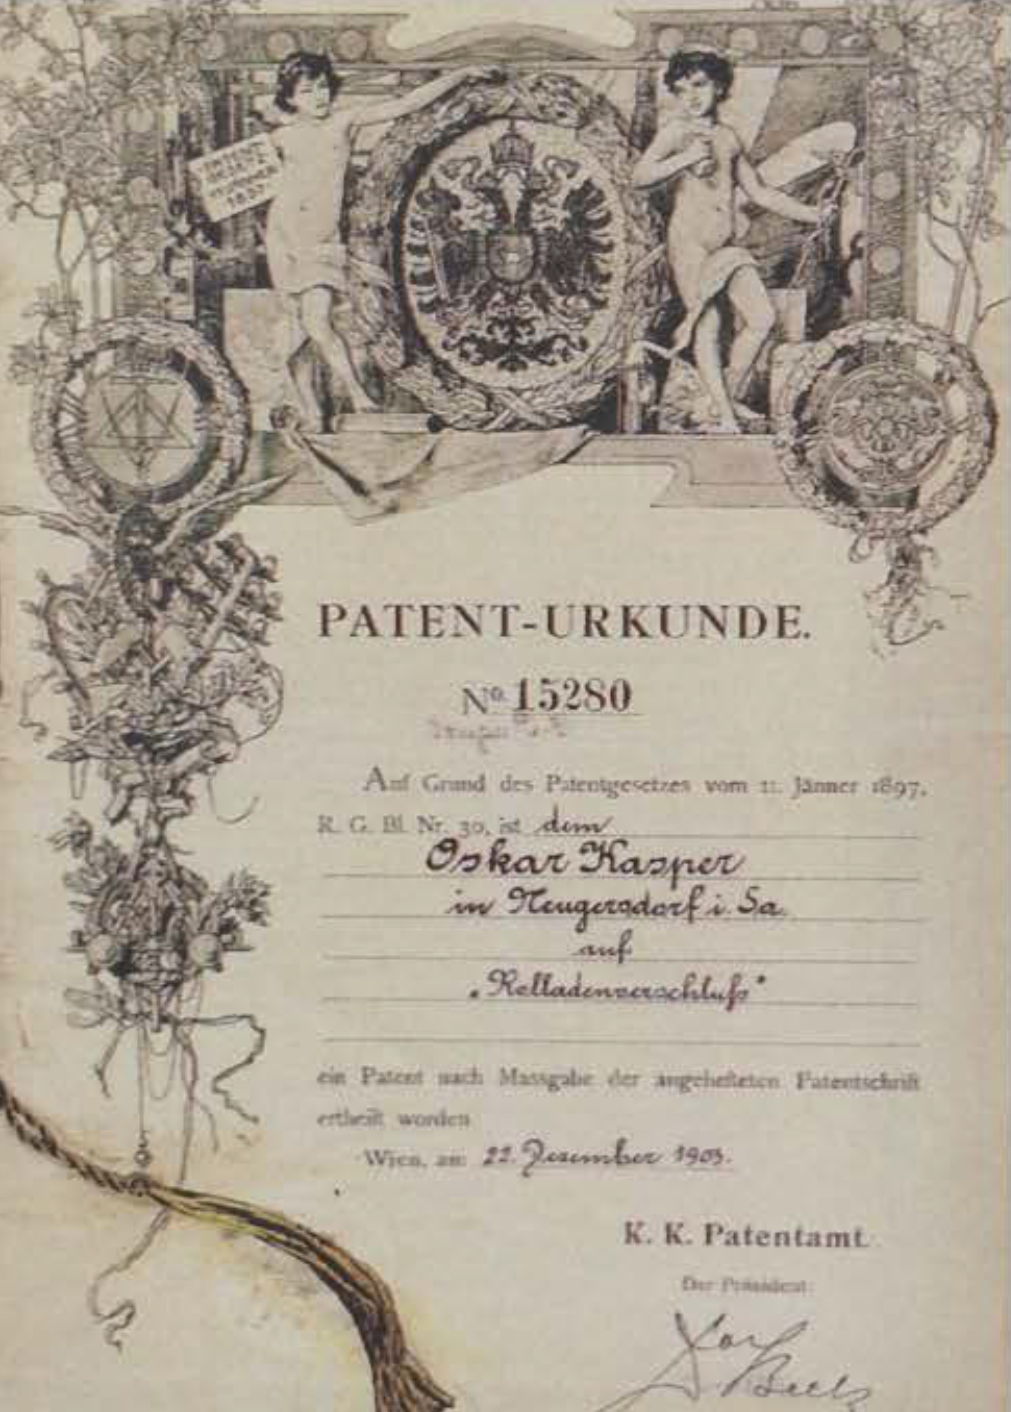 PATENT-URKUNDE.
No. 15280
Auf Grund des Patentgesetzes vom 11. Jänner 1897,
R. G. Bl. Nr. 30, ist dem
Oskar Kasper
in Neugersdorf i. Sa.
auf
"Rolladenverschluß"
ein Patent nach Massgabe der angehefteten Patentschrift
ertheilt worden
Wien, am 22. Dezember 1903.
K. K. Patentamt.
Der Präsident: